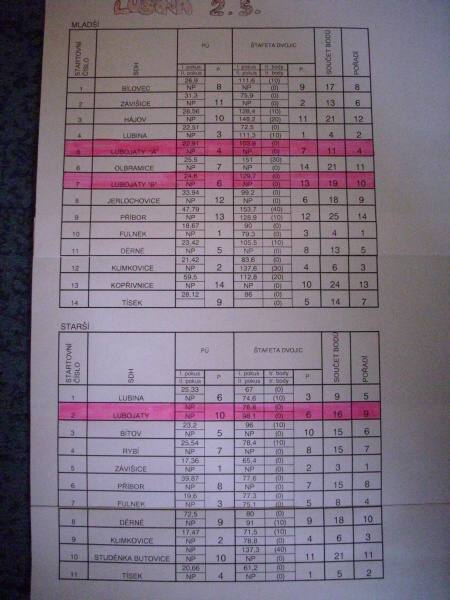 LUBINA 2.5.
MLADŠÍ
STARTOVNÍ ČÍSLO SDH PÚ ŠTAFETA DVOJIC SOUČET BODŮ POŘADÍ
I. pokus P. I. pokus tr. body P.
II. pokus II. pokus tr. body
26,9 111,6 (10)
1 BÍLOVEC NP 8 NP (0) 9 17 8
31,3 75,9 (0)
2 ZÁVIŠICE NP 11 NP (0) 2 13 6
28,56 128,4 (10)
3 HÁJOV NP 10 148,2 (20) 11 21 12
22,51 72,5 (0)
4 LUBINA NP 3 111,3 (10) 1 4 2
22,91 103,9 (0)
5 LUBOJATY "A" NP 4 NP (0) 7 11 4
25,5 151 (30)
6 OLBRAMICE NP 7 NP (0) 14 21 11
24,6 129,7 (0)
7 LUBOJATY "B" NP 6 NP (0) 13 19 10
33,94 99,2 (0)
8 JERLOCHOVICE NP 12 NP (0) 6 18 9
47,79 153,7 (40)
9 PŘÍBOR NP 13 128,9 (10) 12 25 14
18,67 90 (0)
10 FULNEK NP 1 79,3 (0) 3 4 1
23,42 105,5 (10)
11 DĚRNÉ NP 5 NP (0) 8 13 5
21,42 83,6 (0)
12 KLIMKOVICE NP 2 137,6 (30) 4 6 3
59,5 112,8 (20)
13 KOPŘIVNICE NP 14 NP (0) 10 24 13
28,12 86 (0)
14 TÍSEK NP 9 NP (0) 5 14 7
STARŠÍ
STARTOVNÍ ČÍSLO SDH PÚ ŠTAFETA DVOJIC SOUČET BODŮ POŘADÍ
I. pokus P. I. pokus tr. body P.
II. pokus II. pokus tr. body
25,33 67 (0)
1 LUBINA NP 6 74,6 (10) 3 9 5
NP 78,8 (0)
2 LUBOJATY NP 10 98,1 (0) 6 16 9
23,2 96 (10)
3 BÍTOV NP 5 NP (0) 10 15 6
25,54 78,4 (10)
4 RYBÍ NP 7 NP (0) 8 15 7
17,36 65,4 (0)
5 ZÁVIŠICE NP 1 NP (0) 2 3 1
39,87 77,6 (0)
6 PŘÍBOR NP 8 NP (0) 7 15 8
19,6 77,3 (0)
7 FULNEK NP 3 75,1 (0) 5 8 4
72,5 80 (0)
8 DĚRNÉ NP 9 91 (10) 9 18 10
17,47 71,5 (10)
9 KLIMKOVICE NP 2 78,8 (0) 4 6 3
NP 137,3 (40)
10 STUDÉNKA BUTOVICE NP 10 NP (0) 11 21 11
20,66 61,2 (0)
11 TÍSEK NP 4 NP (0) 1 5 2